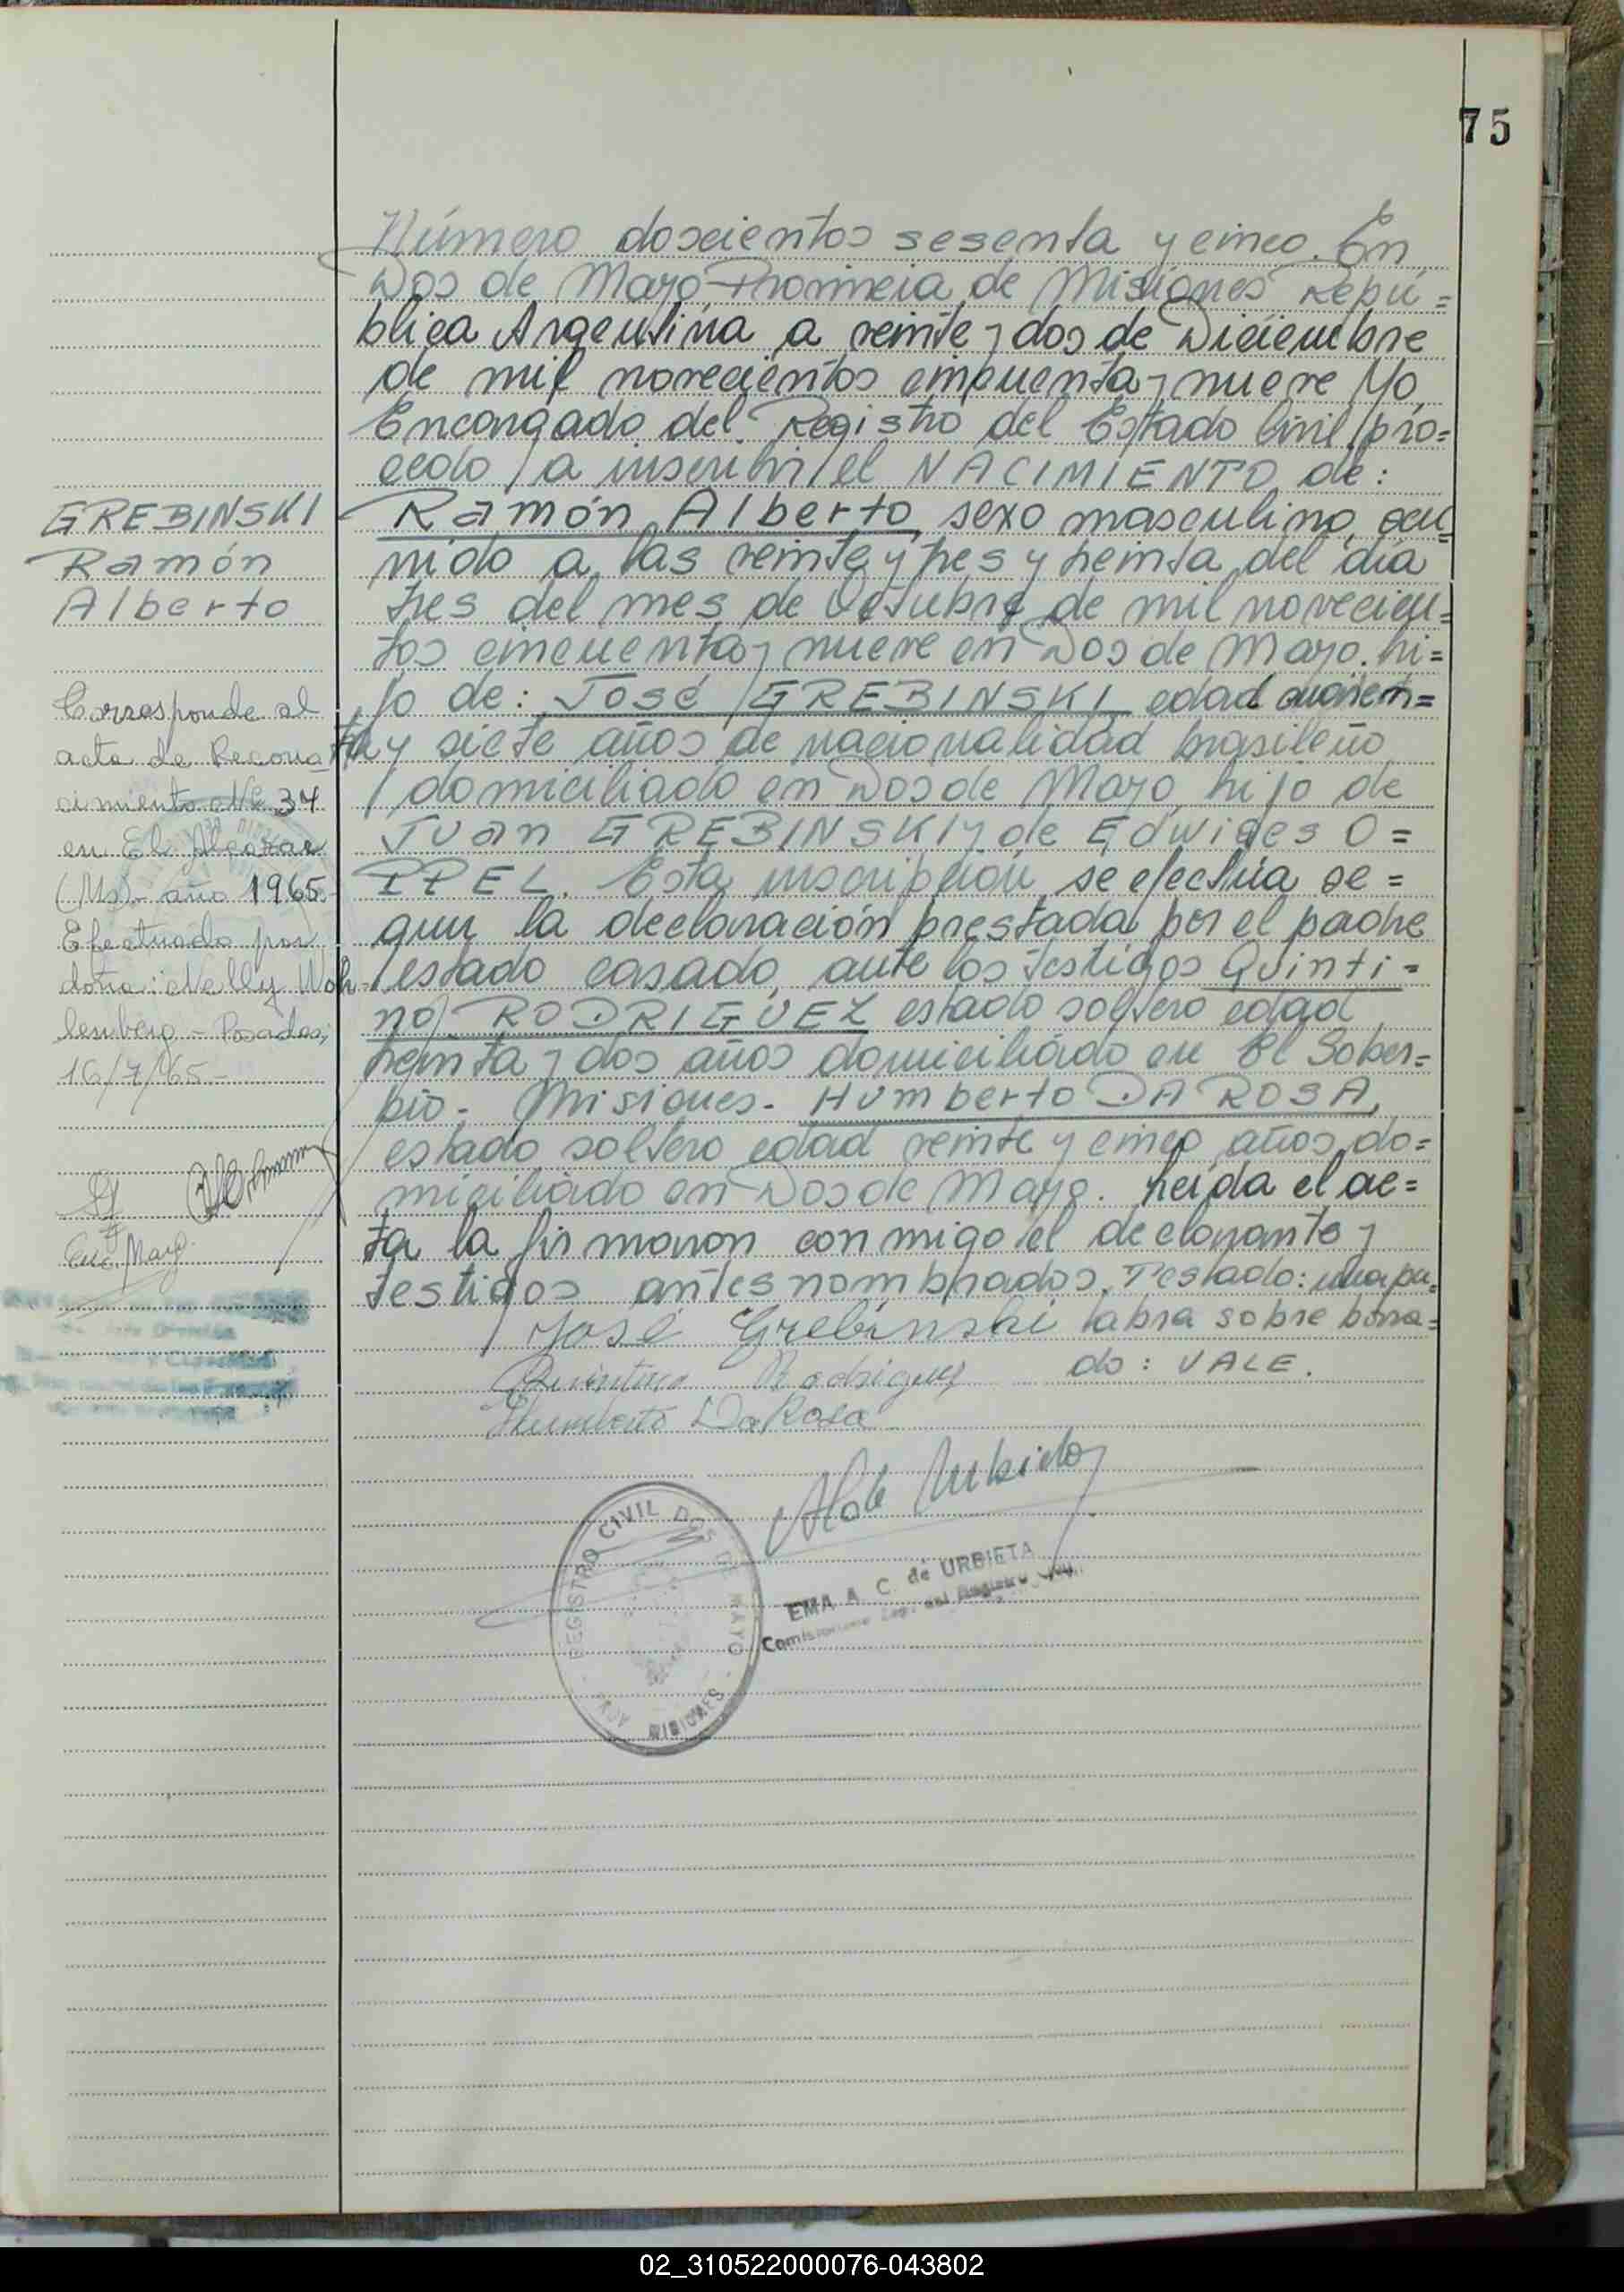 75
Número doscientos sesenta y cinco. En
Dos de Mayo, Provincia de Misiones Repú=
blica Argentina a veinte y dos de Diciembre
de mil novecientos cincuenta y nueve Yo,
Encargado del Registro del Estado Civil, pro=
cedo a inscribir el NACIMIENTO de:
Ramón Alberto, sexo masculino, ocu
rrido a las veinte y tres y treinta del día
tres del mes de Octubre de mil novecien=
tos cincuenta y nueve en Dos de Mayo. hi=
jo de: José GREBINSKI edad
ta y siete años de nacionalidad brasileño
domiciliado en Dos de Mayo, hijo de
Juan GREBINSKI y de Edwiges O=
PPEL. Esta inscripción se efectúa se=
gun la declaración prestada por el padre
estado casado, ante los testigos Quinti=
no RODRIGUEZ estado soltero edad
treinta y dos años domiciliado en El Sober=
bio. Misiones. Humberto DA ROSA,
estado soltero edad veinte y cinco años do=
miciliado en Dos de Mayo. Leida el ac=
ta la firmaron conmigo el declarante y
testigos antes nombrados. Testado: una pa=
labra sobre borra=
do: VALE.
José Grebinski
Quintino Rodriguez
Humberto Da Rosa
REGISTRO CIVIL DOS DE MAYO
MISIONES
EMA A. C. de URBIETA
GREBINSKI
Ramón
Alberto
Corresponde al
acta de Recono
cimiento Nº 34
en El Alcazar
(Ms)- año 1965.
Efectuado por
doña: Nelly Woh-
lemberg - Posadas,
16/7/65-
02_310522000076-043802